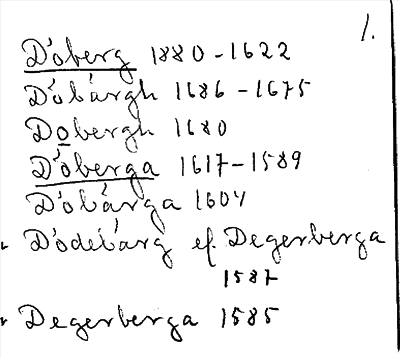 1.
Döberg 1880-1622
Döbärgh 1686-1675
Dobergh 1680
Döberga 1617-1589
Döbärga 1604
Dödebärg ef. Degerberga
1587
Degerberga 1585